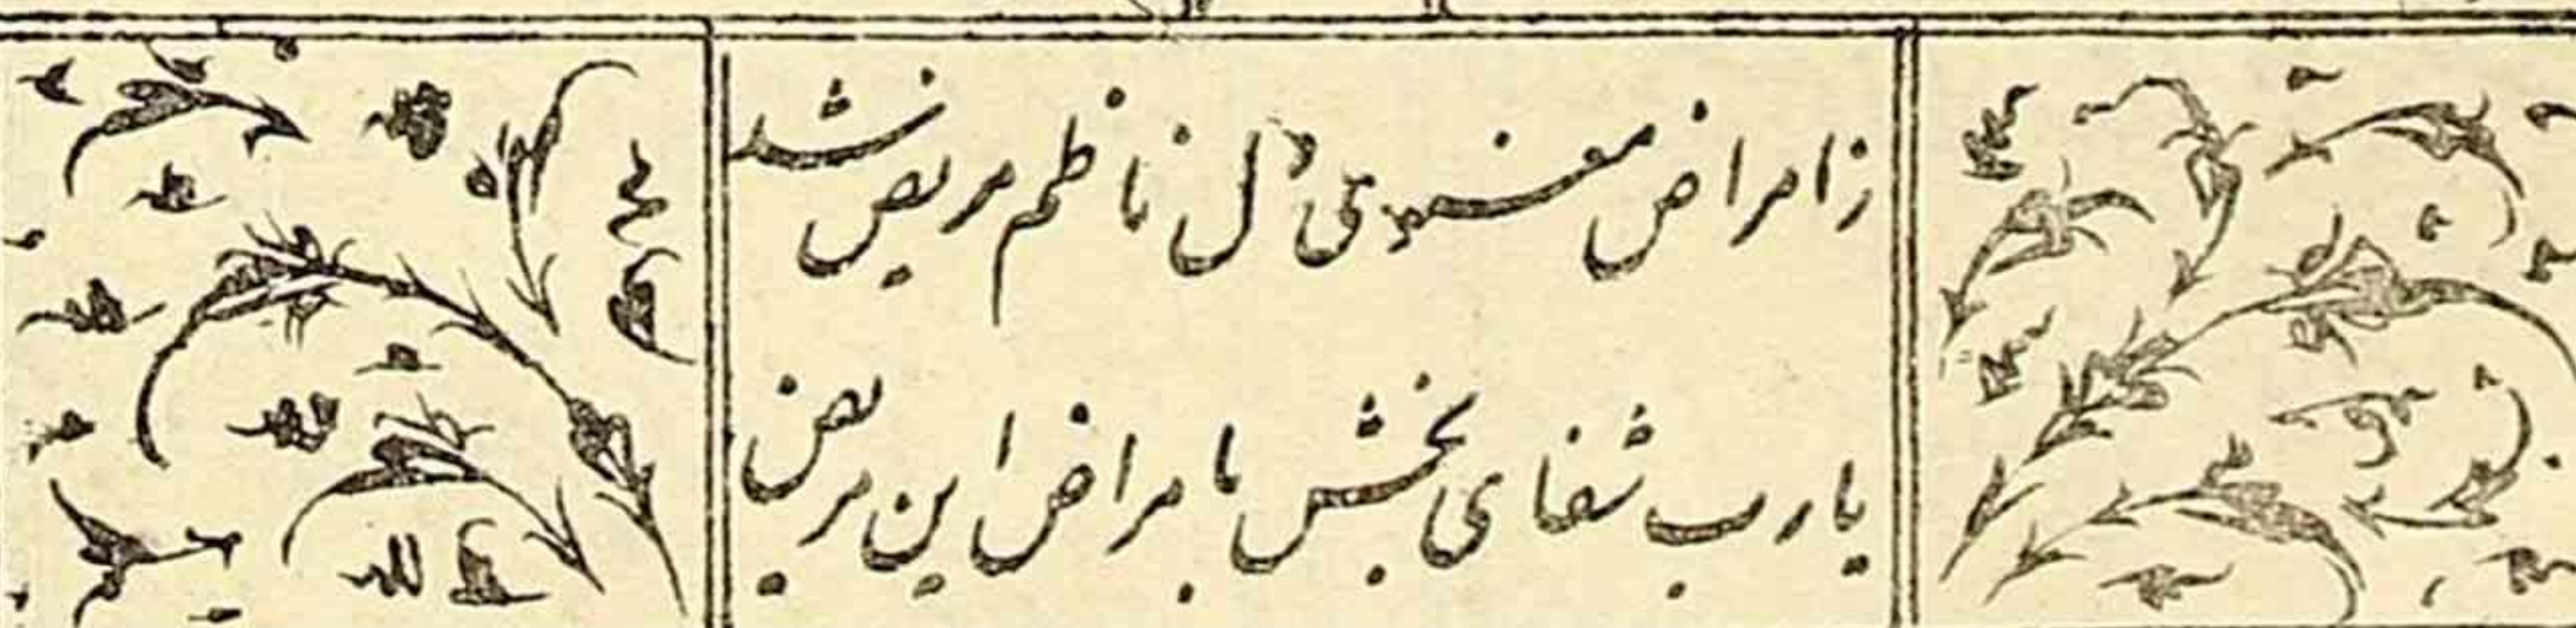 ز امراض معنوی دل ناظم مریض شد
یا رب شفای بخش بامراض این مریض